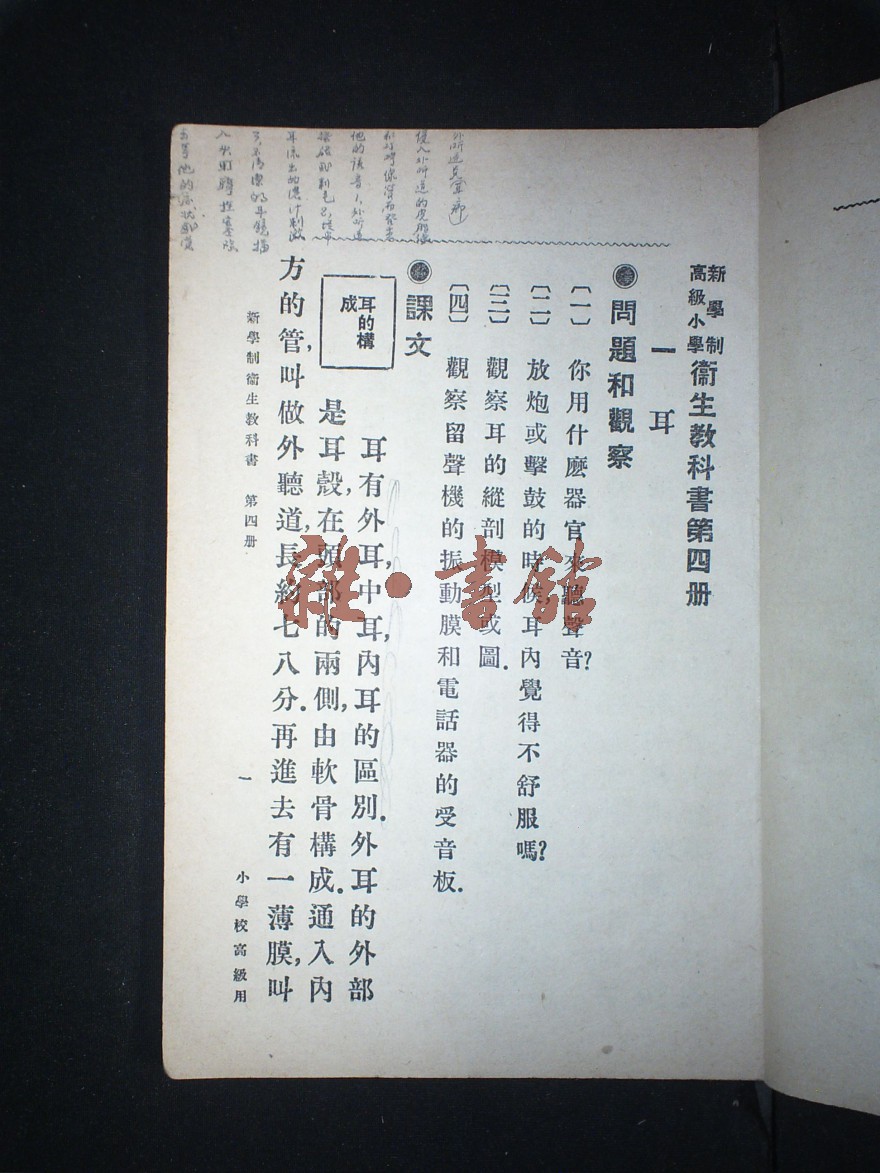 新學制
高級小學
衞生教科書第四册
一 耳
問題和觀察
〔一〕 你用什麽器官來聽聲音?
〔二〕 放炮或擊鼓的時候,耳內覺得不舒服嗎?
〔三〕 觀察耳的縱剖模型或圖.
〔四〕 觀察留聲機的振動膜和電話器的受音板.
課文
耳的構成
耳有外耳,中耳,內耳的區別.外耳的外部
是耳殼,在頭部的兩側,由軟骨構成.通入內
方的管,叫做外聽道,長約七八分.再進去有一薄膜,叫
新學制衞生教科書 第四册
一
小學校高級用
雜·書館